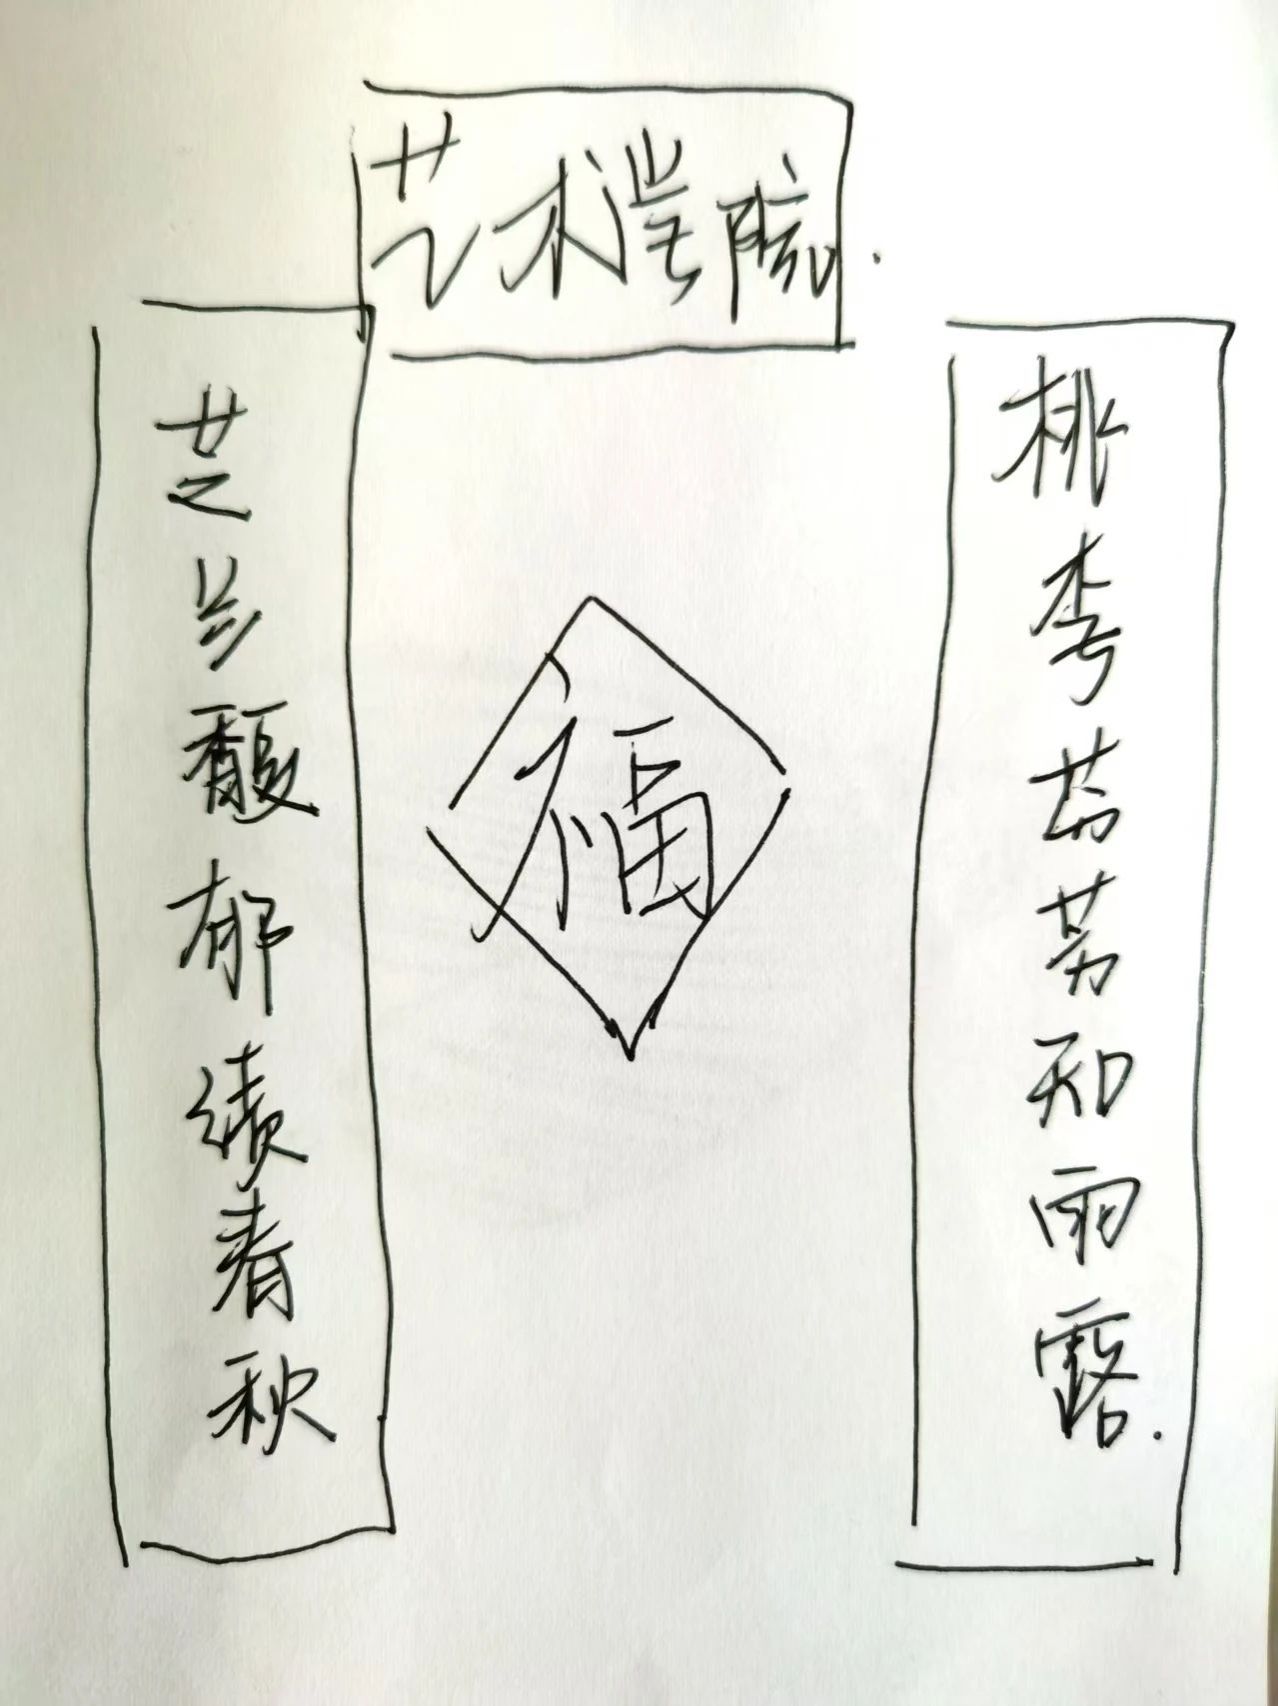 艺术院
桃李芬芳知雨露.
芝兰馥郁绩春秋
福